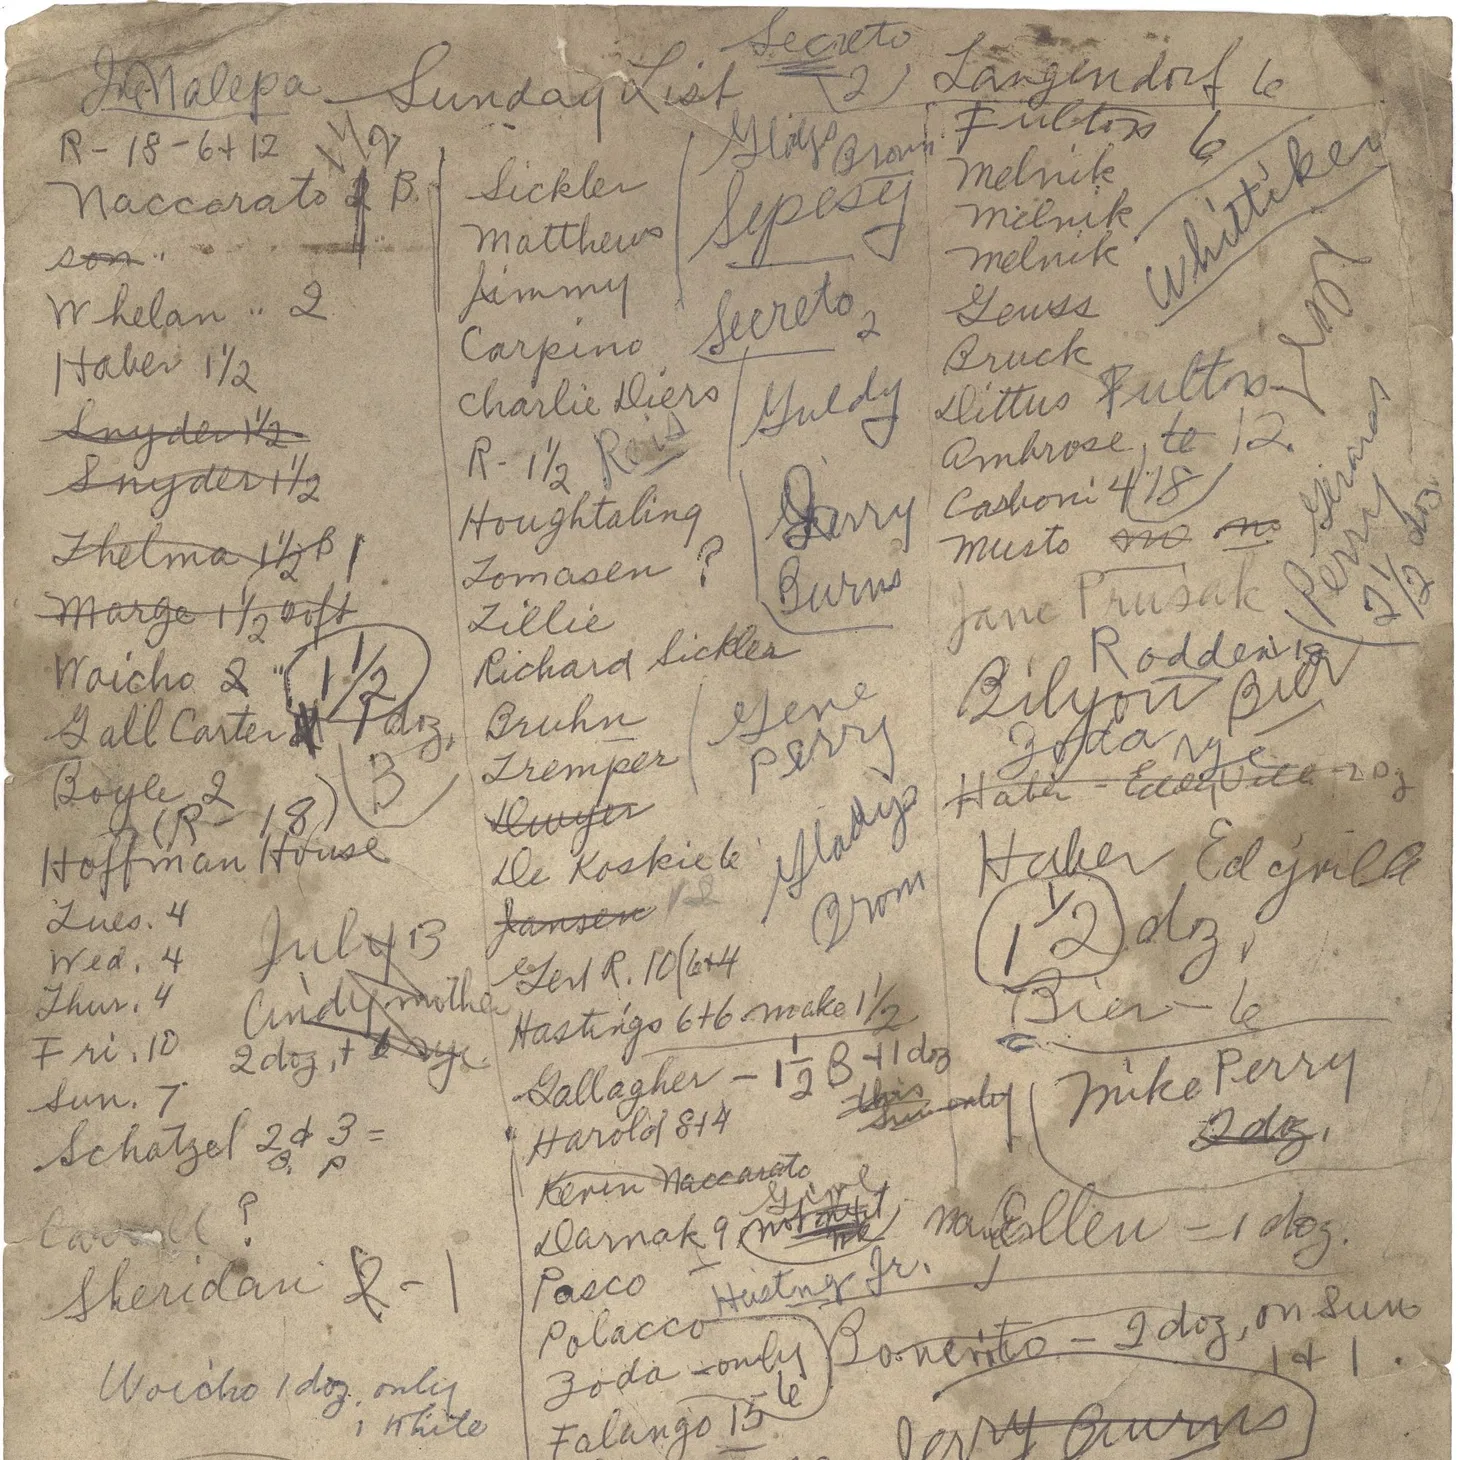 Secreto
2
Jr. Malepa
Sunday List
Langendorf 6
R - 18 - 6 + 12
1 1/2
Naccarato 2 B.
son "
Whelan " 2
Haber 1 1/2
Snyder 1 1/2
Snyder 1 1/2
Thelma 1 1/2 B 1
Marge 1 1/2 soft
Woicho 2 " 1 1/2
Gall Carter 1 doz.
Boyle 2
3
(R - 18)
Hoffman House
Tues. 4
Wed. 4
Thur. 4
Fri. 10
Sun. 7
July 13
Cindy mother
2 doz. + 6 rye
Schatzel 2 & 3 =
B. P
Carroll ?
Sheridan 2 - 1
Woicho 1 doz. only
1 White
Sickler
Matthews
Jimmy
Carpino
Charlie Diers
R - 1 1/2 Reis
Houghtaling
Tomasen ?
Lillie
Richard Sickler
Bruhn
Tremper
Dwyer
De Koskie 6
Jansen 12
Gert R. 10 (6+4
Hastings 6+6 make 1 1/2
Gallagher - 1 1/2 B + 1 doz
this
Sun only
Harold 8+4
Kevin Naccarato
Darnak 9
Pasco
Hasting Jr.
Polacco
Zoda - only
6
Falango 15
Gladys Brown
Sepesy
Secreto 2
Guldy
Gerry
Burns
Gene
Perry
Gladys
Brown
Fultons 6
Melnik
Melnik
Melnik
Geuss
Bruck
Dittus Fultons
Ambrose, te 12.
Casboni 4 18
Musto no no
Whittiker
Jane Prusak
Gerard
Perry
2 1/2 doz.
Rodden
Bilyou Bier
Zoda rye
Haber - Eddyville - 2 Dz
Haber Edyville
1 1/2 doz.
Bier - 6
Mike Perry
2 doz.
Mary Ellen = 1 doz.
Bonerito - 2 doz, on Sun
1 + 1.
Jerry Burns